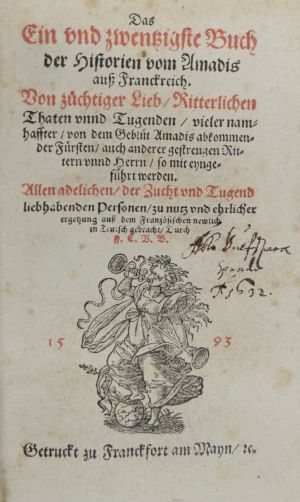 Das
Ein vnd zwentzigste Buch
der Historien vom Amadis
auß Franckreich.
Von züchtiger Lieb/ Ritterlichen
Thaten vnnd Tugenden / vieler nam-
haffter / von dem Geblüt Amadis abkommen-
der Fürsten/ auch anderer gestrengen Rit-
tern vnnd Herrn / so mit eynge-
führt werden.
Allen adelichen/ der Zucht vnd Tugend
liebhabenden Personen/ zu nutz vnd ehrlicher
ergetzung auß dem Frantzösischen newlich
in Teutsch gebracht/ Durch
F. C. V. B.
1632.
15 93
Getruckt zu Franckfort am Mayn/ ꝛc.